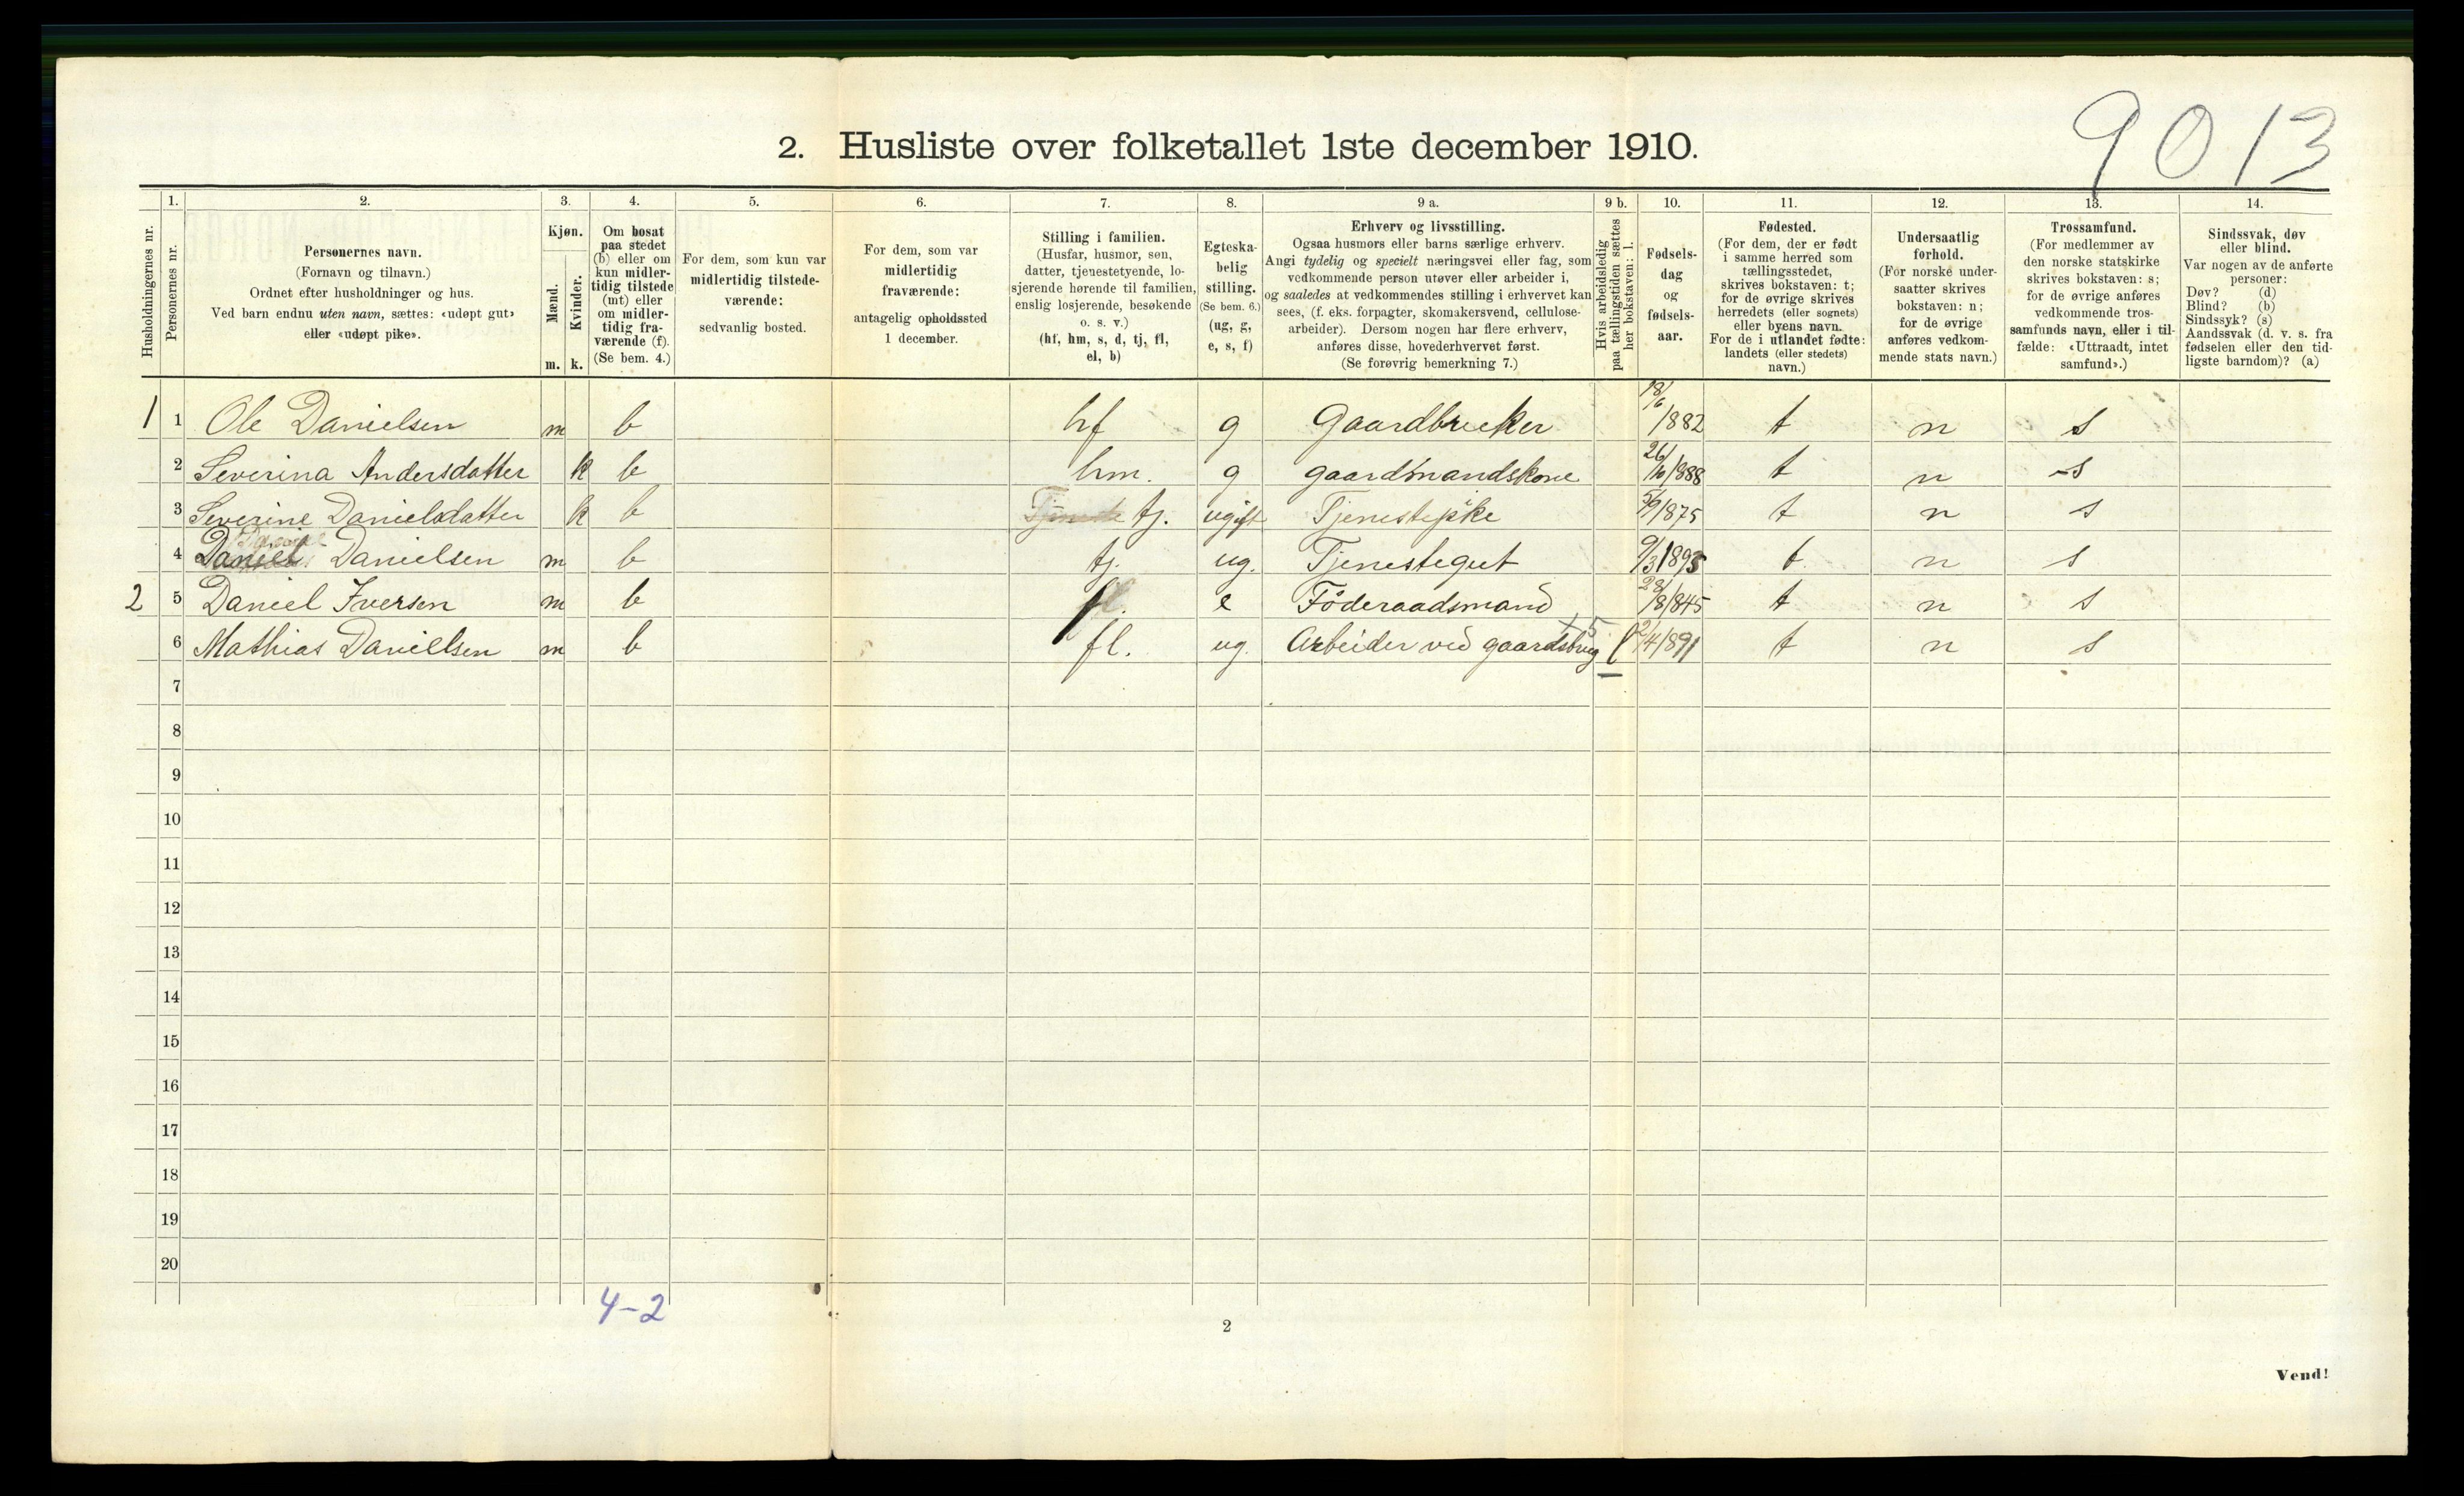 9013
2. Husliste over folketallet 1ste december 1910.
Husholdningernes nr.
1.
Personernes nr.
2.
Personernes navn.
(Fornavn og tilnavn.)
Ordnet efter husholdninger og hus.
Ved barn endnu uten navn, sættes: «udøpt gut»
eller «udøpt pike».
3.
Kjøn.
Mænd.
Kvinder.
m. k.
4.
Om bosat
paa stedet
(b) eller om
kun midler-
tidig tilstede
(mt) eller
om midler-
tidig fra-
værende (f).
(Se bem. 4.)
5.
For dem, som kun var
midlertidig tilstede-
værende:
sedvanlig bosted.
6.
For dem, som var
midlertidig
fraværende:
antagelig opholdssted
1 december.
7.
Stilling i familien.
(Husfar, husmor, søn,
datter, tjenestetyende, lo-
sjerende hørende til familien,
enslig losjerende, besøkende
o. s. v.)
(hf, hm, s, d, tj, fl,
el, b)
8.
Egteska-
belig
stilling.
(Se bem. 6.)
(ug, g,
e, s, f)
9 a.
Erhverv og livsstilling.
Ogsaa husmors eller barns særlige erhverv.
Angi tydelig og specielt næringsvei eller fag, som
vedkommende person utøver eller arbeider i,
og saaledes at vedkommendes stilling i erhvervet kan
sees, (f. eks. forpagter, skomakersvend, cellulose-
arbeider). Dersom nogen har flere erhverv,
anføres disse, hovederhvervet først.
(Se forøvrig bemerkning 7.)
9 b.
Hvis arbeidsledig
paa tællingstiden sættes
her bokstaven: l.
10.
Fødsels-
dag
og
fødsels-
aar.
11.
Fødested.
(For dem, der er født
i samme herred som
tællingsstedet,
skrives bokstaven: t;
for de øvrige skrives
herredets (eller sognets)
eller byens navn.
For de i utlandet fødte:
landets (eller stedets)
navn.)
12.
Undersaatlig
forhold.
(For norske under-
saatter skrives
bokstaven: n;
for de øvrige
anføres vedkom-
mende stats navn.)
13.
Trossamfund.
(For medlemmer av
den norske statskirke
skrives bokstaven: s;
for de øvrige anføres
vedkommende tros-
samfunds navn, eller i til-
fælde: «Uttraadt, intet
samfund».)
14.
Sindssvak, døv
eller blind.
Var nogen av de anførte
personer:
Døv? (d)
Blind? (b)
Sindssyk? (s)
Aandssvak (d. v. s. fra
fødselen eller den tid-
ligste barndom)? (a)
1 1 Ole Danielsen m b hf g Gaardbruker 18/6 1882 t n s
2 Severina Andersdatter k b hm. g gaardmandskone 26/10/888 t n s
3 Severine Danielsdatter k b Tjeneste tj. ugift Tjenestepike 5/9/875 t n s
4 Daniel Danielsen m b tj. ug. Tjenestegut 9/3 1895 t n s
2 5 Daniel Iversen m b fl. e Föderaadsmand 28/8/845 t n s
6 Mathias Daniellsen m b fl. ug. Arbeider ved gaardsbrug l 2/4/891 t n s
7
8
9
10
11
12
13
14
15
16
17
18
19
20
4-2
2
Vend!